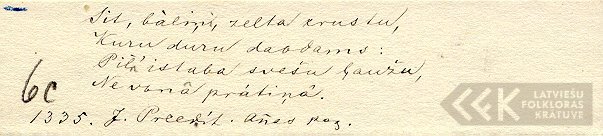 Sit, bāliņi, zelta krustu,
Kuru duru daodams:
Pilā istaba svešu ļaužu,
Nevonā prātiņā.
6c
1335. J. Preedīt. Aņes pag.
LATVIEŠU
FOLKLORAS
KRĀTUVE